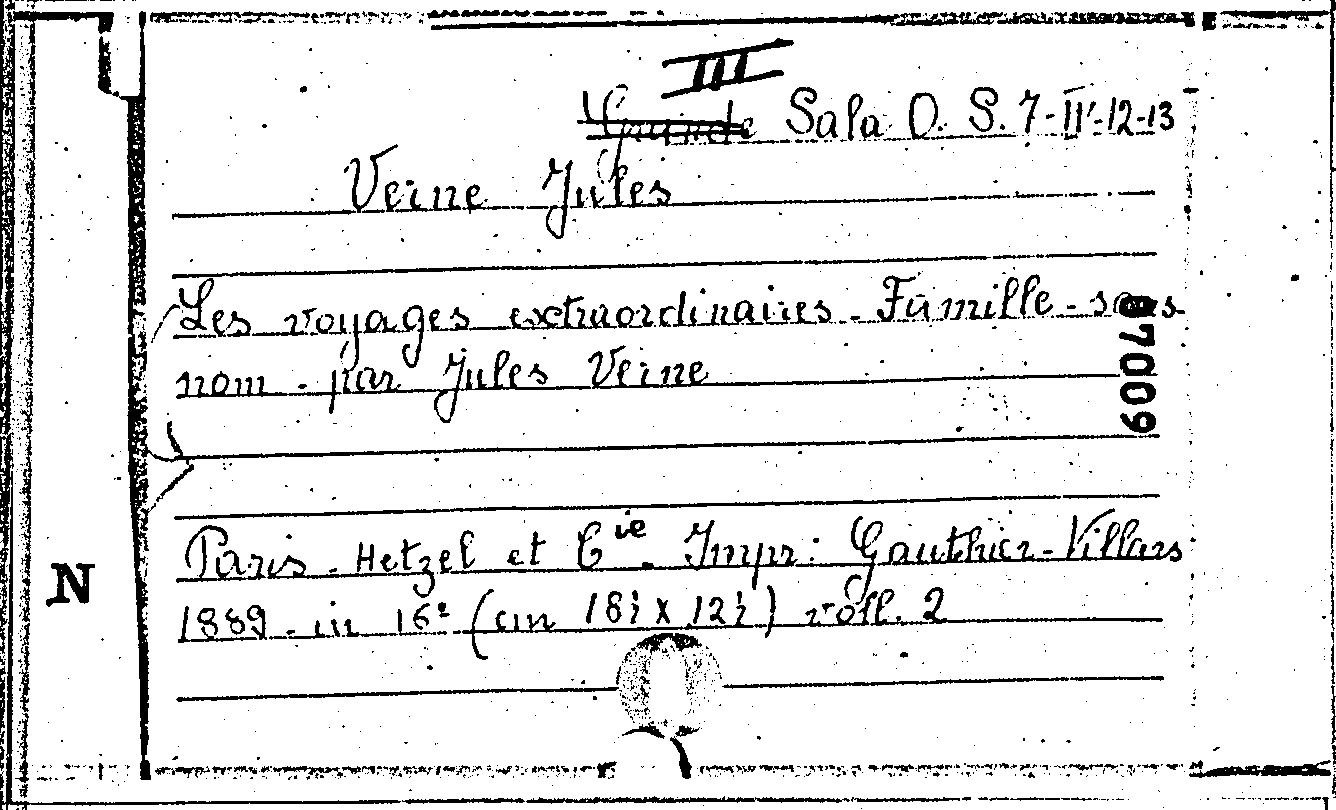 III
Grande Sala O. S. 7-II-12-13
Verne Jules
Les voyages extraordinaires - Famille - sans
nom - par Jules Verne
67009
Paris - Hetzel et Cie - Impr: Gauthier-Villars
N
1889 - in 16º (cm 18½ x 12½) voll. 2